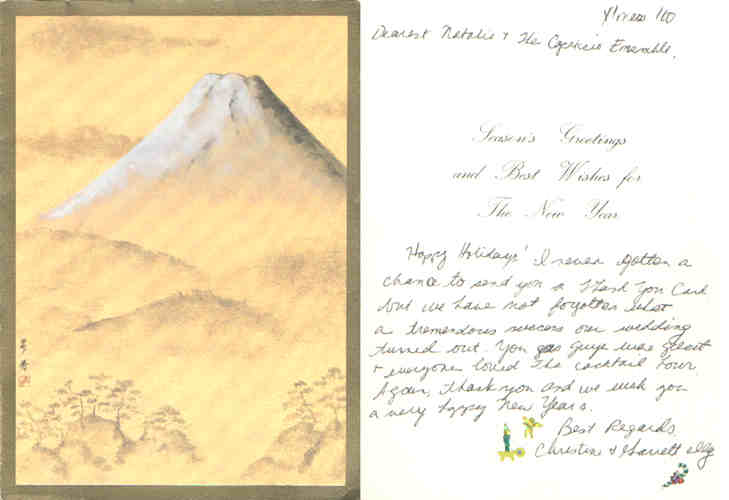 Dearest Natalie + The Capricio Ensemble,
Season's Greetings
and Best Wishes for
The New Year
Happy Holidays! I never gotten a
chance to send you a Thank You Card
but we have not forgotten what
a tremendous success our wedding
turned out. You guys were great
+ everyone loved The cocktail hour.
Again, thank you and we wish you
a very happy New Years.
Best Regards
Christine + Garrett